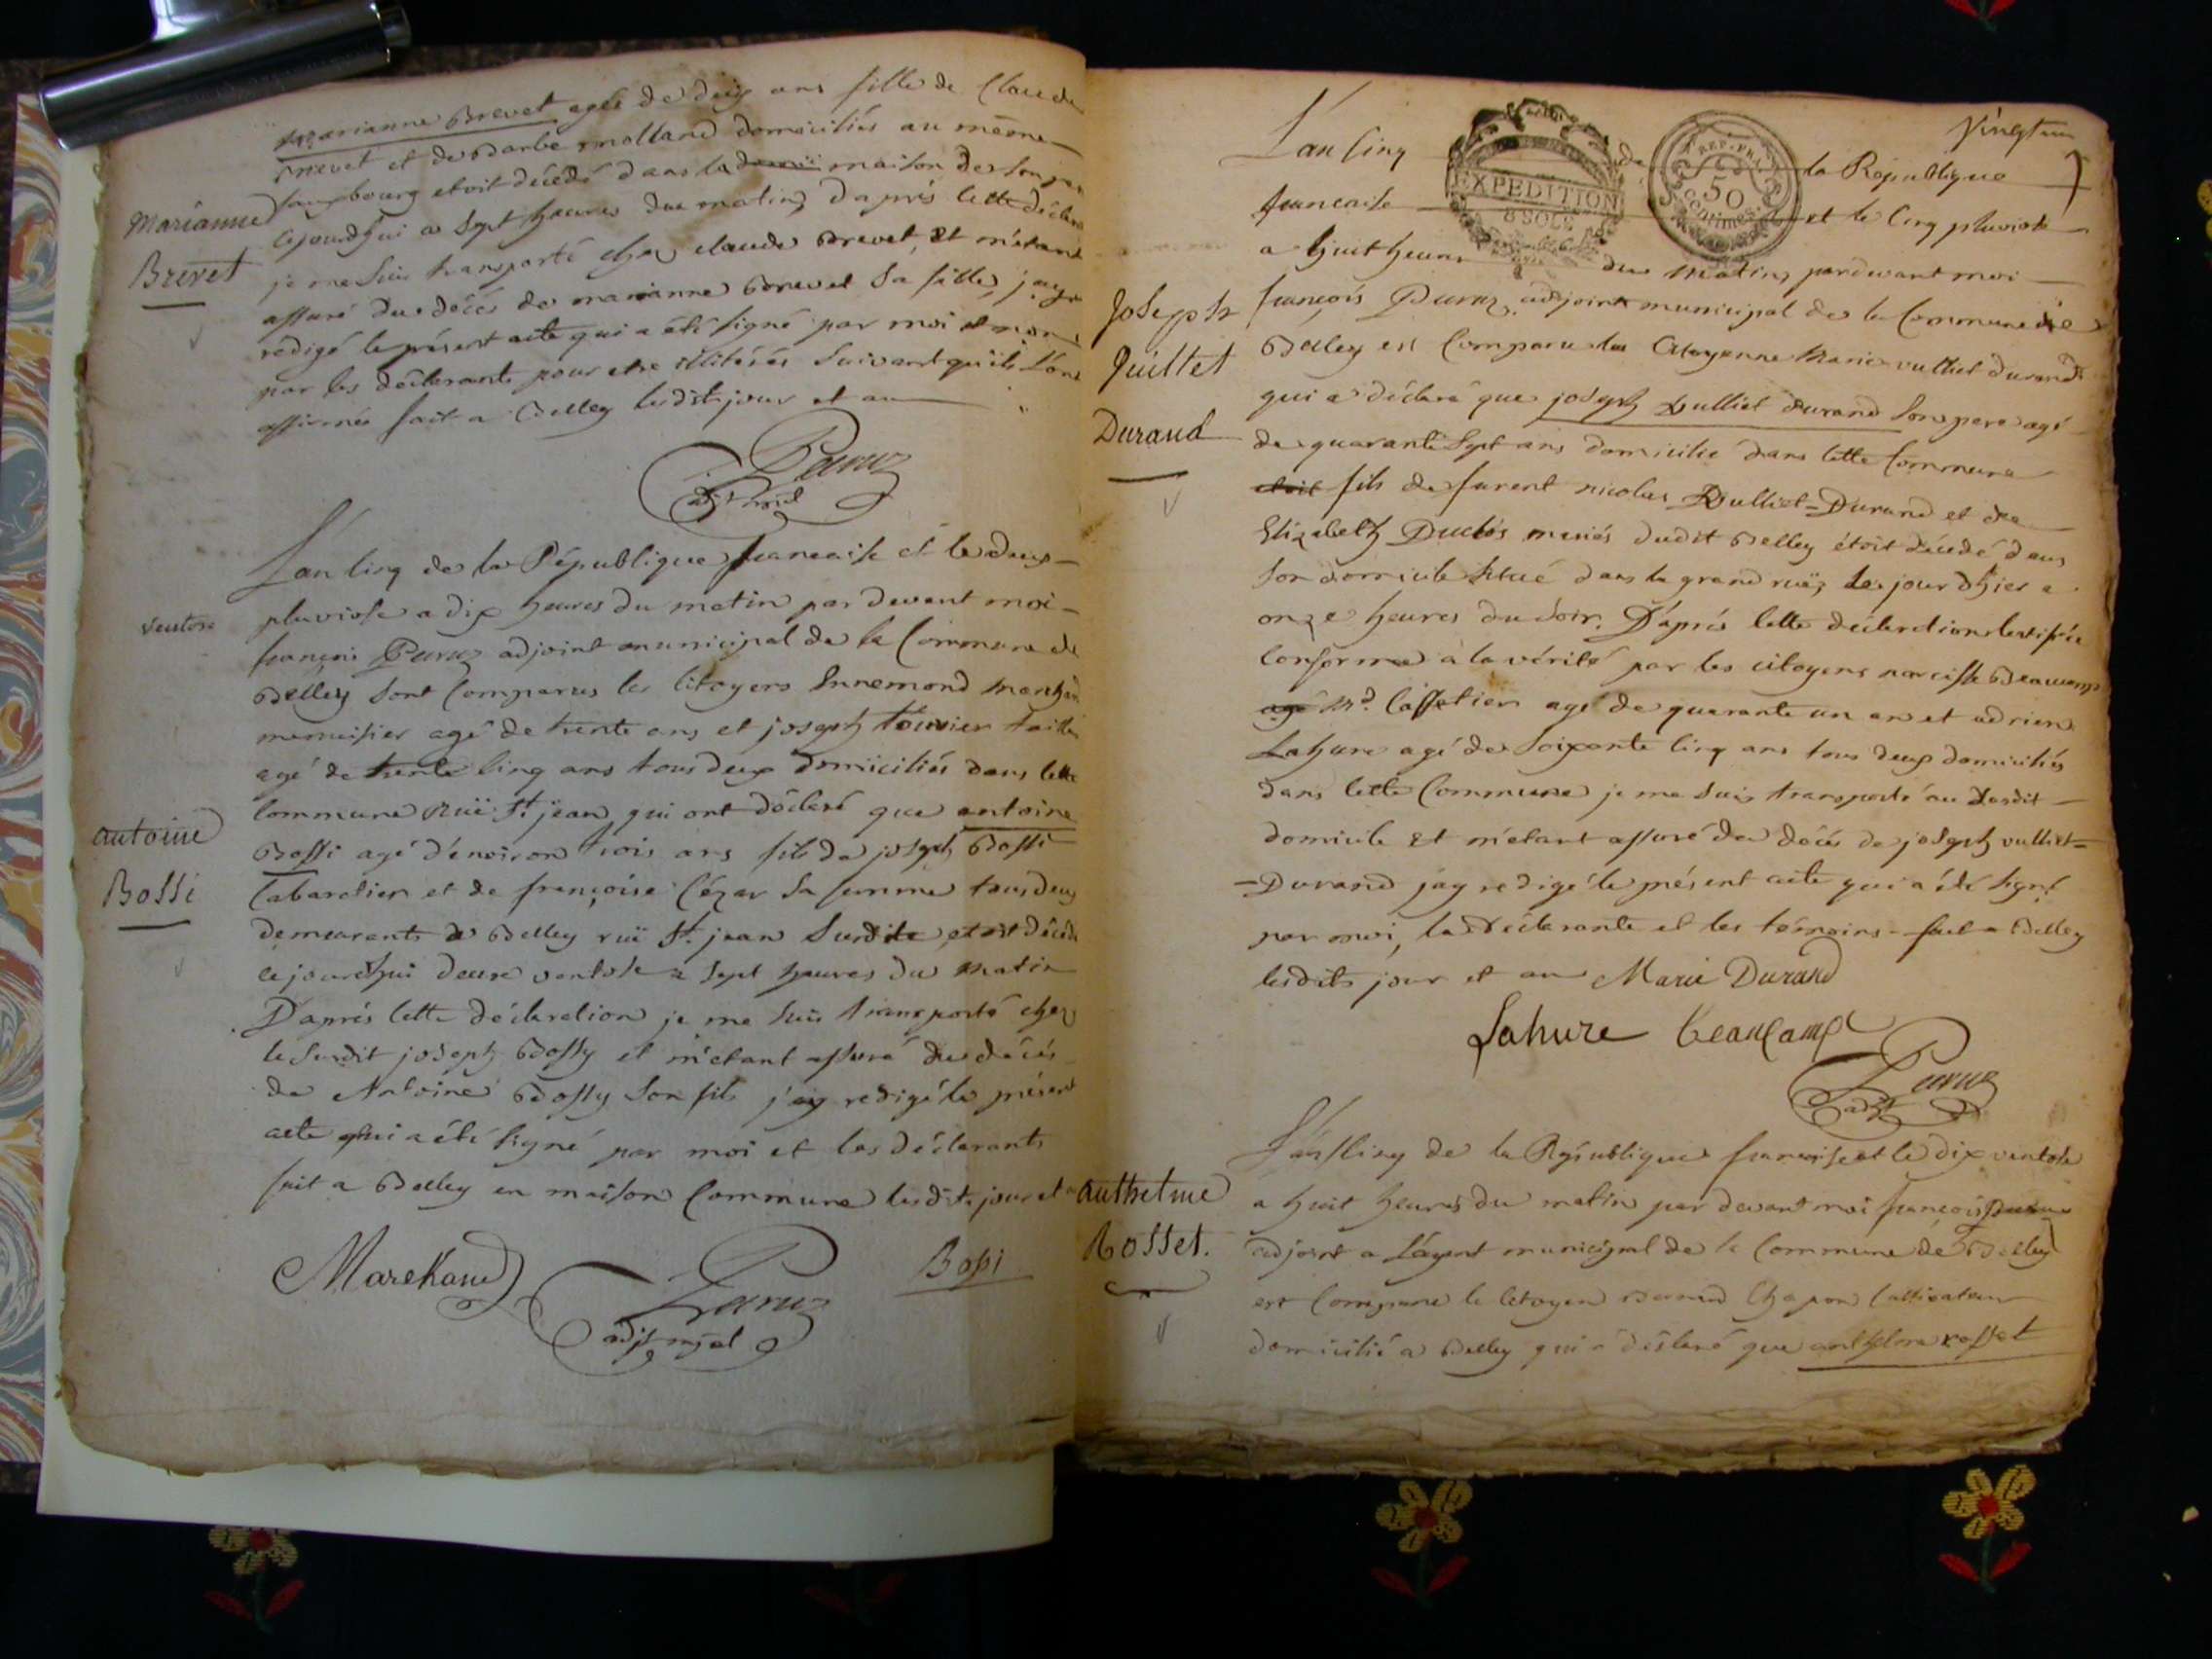 Marianne Brevet agée de dix ans fille de Claude
Brevet et de Barbe molland domiciliés au même
fauxbourg etoit décédé dans la maison de son per
cejourdhui a sept heures du matin, d'aprés cette déclara
Marianne
Brevet
je me suis transporté chez claude Brevet, et m'étant
assuré du décés de marianne Brevet sa fille, j'ay
redigé le présent acte qui a été signé par moi et non
par les déclarants pour etre illiterés suivant qu'ils l'ont
affirmés fait a Belley lesdits jour et an
Peruz
adjt mpal
L'an cinq de la République francaise et le deux
ventose
pluviose a dix heures du matin par devant moi
françois Peruz adjoint municipal de la Commune de
Belley sont Comparus les Citoyens Ennemond Marchand
menuisier agé de trente ans et joseph touvier taille
agé de trente cinq ans tous deux domiciliés dans cette
Commune ruë St jean, qui ont déclaré que antoine
antoine
Bossi
Bossi agé d'environ trois ans fils de joseph Bossi
Cabaretier et de françoise Cézar sa femme tous deux
demeurants a Belley ruë St jean susdite etoit décédé
cejourdhui deux ventose a sept heures du matin
D'aprés cette déclaration je me suis transporté chez
le susdit joseph Bossy et m'étant assuré du décés
de Antoine Bossy son fils j'ay redigé le présent
acte qui a été signé par moi et les déclarants
fait a Belley en maison Commune lesdits jour et a
Marchand
Peruz
adjt mpal
Bossi
vingt un
L'an Cinq de la République
EXPEDITION
8 SOLS
REP. FRA.
50
centimes
francaise et le Cinq pluviose
a huit heures du matin, pardevant moi
Joseph
Vulliet
Durand
françois Peruz, adjoint municipal de la Commune de
Belley est Comparu la Citoyenne Marie vulliet durand
qui a déclaré que joseph vulliet durand son pere agé
de quarante sept ans domicilié dans cette Commune
etoit fils de furent nicolas Vulliet=Durand et de
Elizabeth Duclos mariés dudit Belley étoit décédé dans
son domicile situé dans la grand ruë, le jour d'hier a
onze heures du soir. D'aprés cette déclaration certifiée
Conforme à la vérité par les citoyens narcisse Beaucamp
agé Md. Caffetier agé de quarante un an et adrien
Lahure agé de soixante cinq ans tous deux domiciliés
dans cette Commune je me suis transporté au susdit
domicile et m'étant assuré du décés de joseph vulliet=
=Durand j'ay redigé le présent acte qui a été signé
par moi, la déclarante et les témoins fait a Belley
lesdits jour et an Marie Durand
Lahure Beaucamp
Peruz
adjt
L'an Cinq de la République francaise et le dix ventose
authelme
Rosset.
a huit heures du matin par devant moi françois Peruz
adjoint a l'agent municipal de la Commune de Belley
est Comparu le Citoyen Bernard Chapon Cultivateur
domicilié a Belley qui a déclaré que anthelme rosset